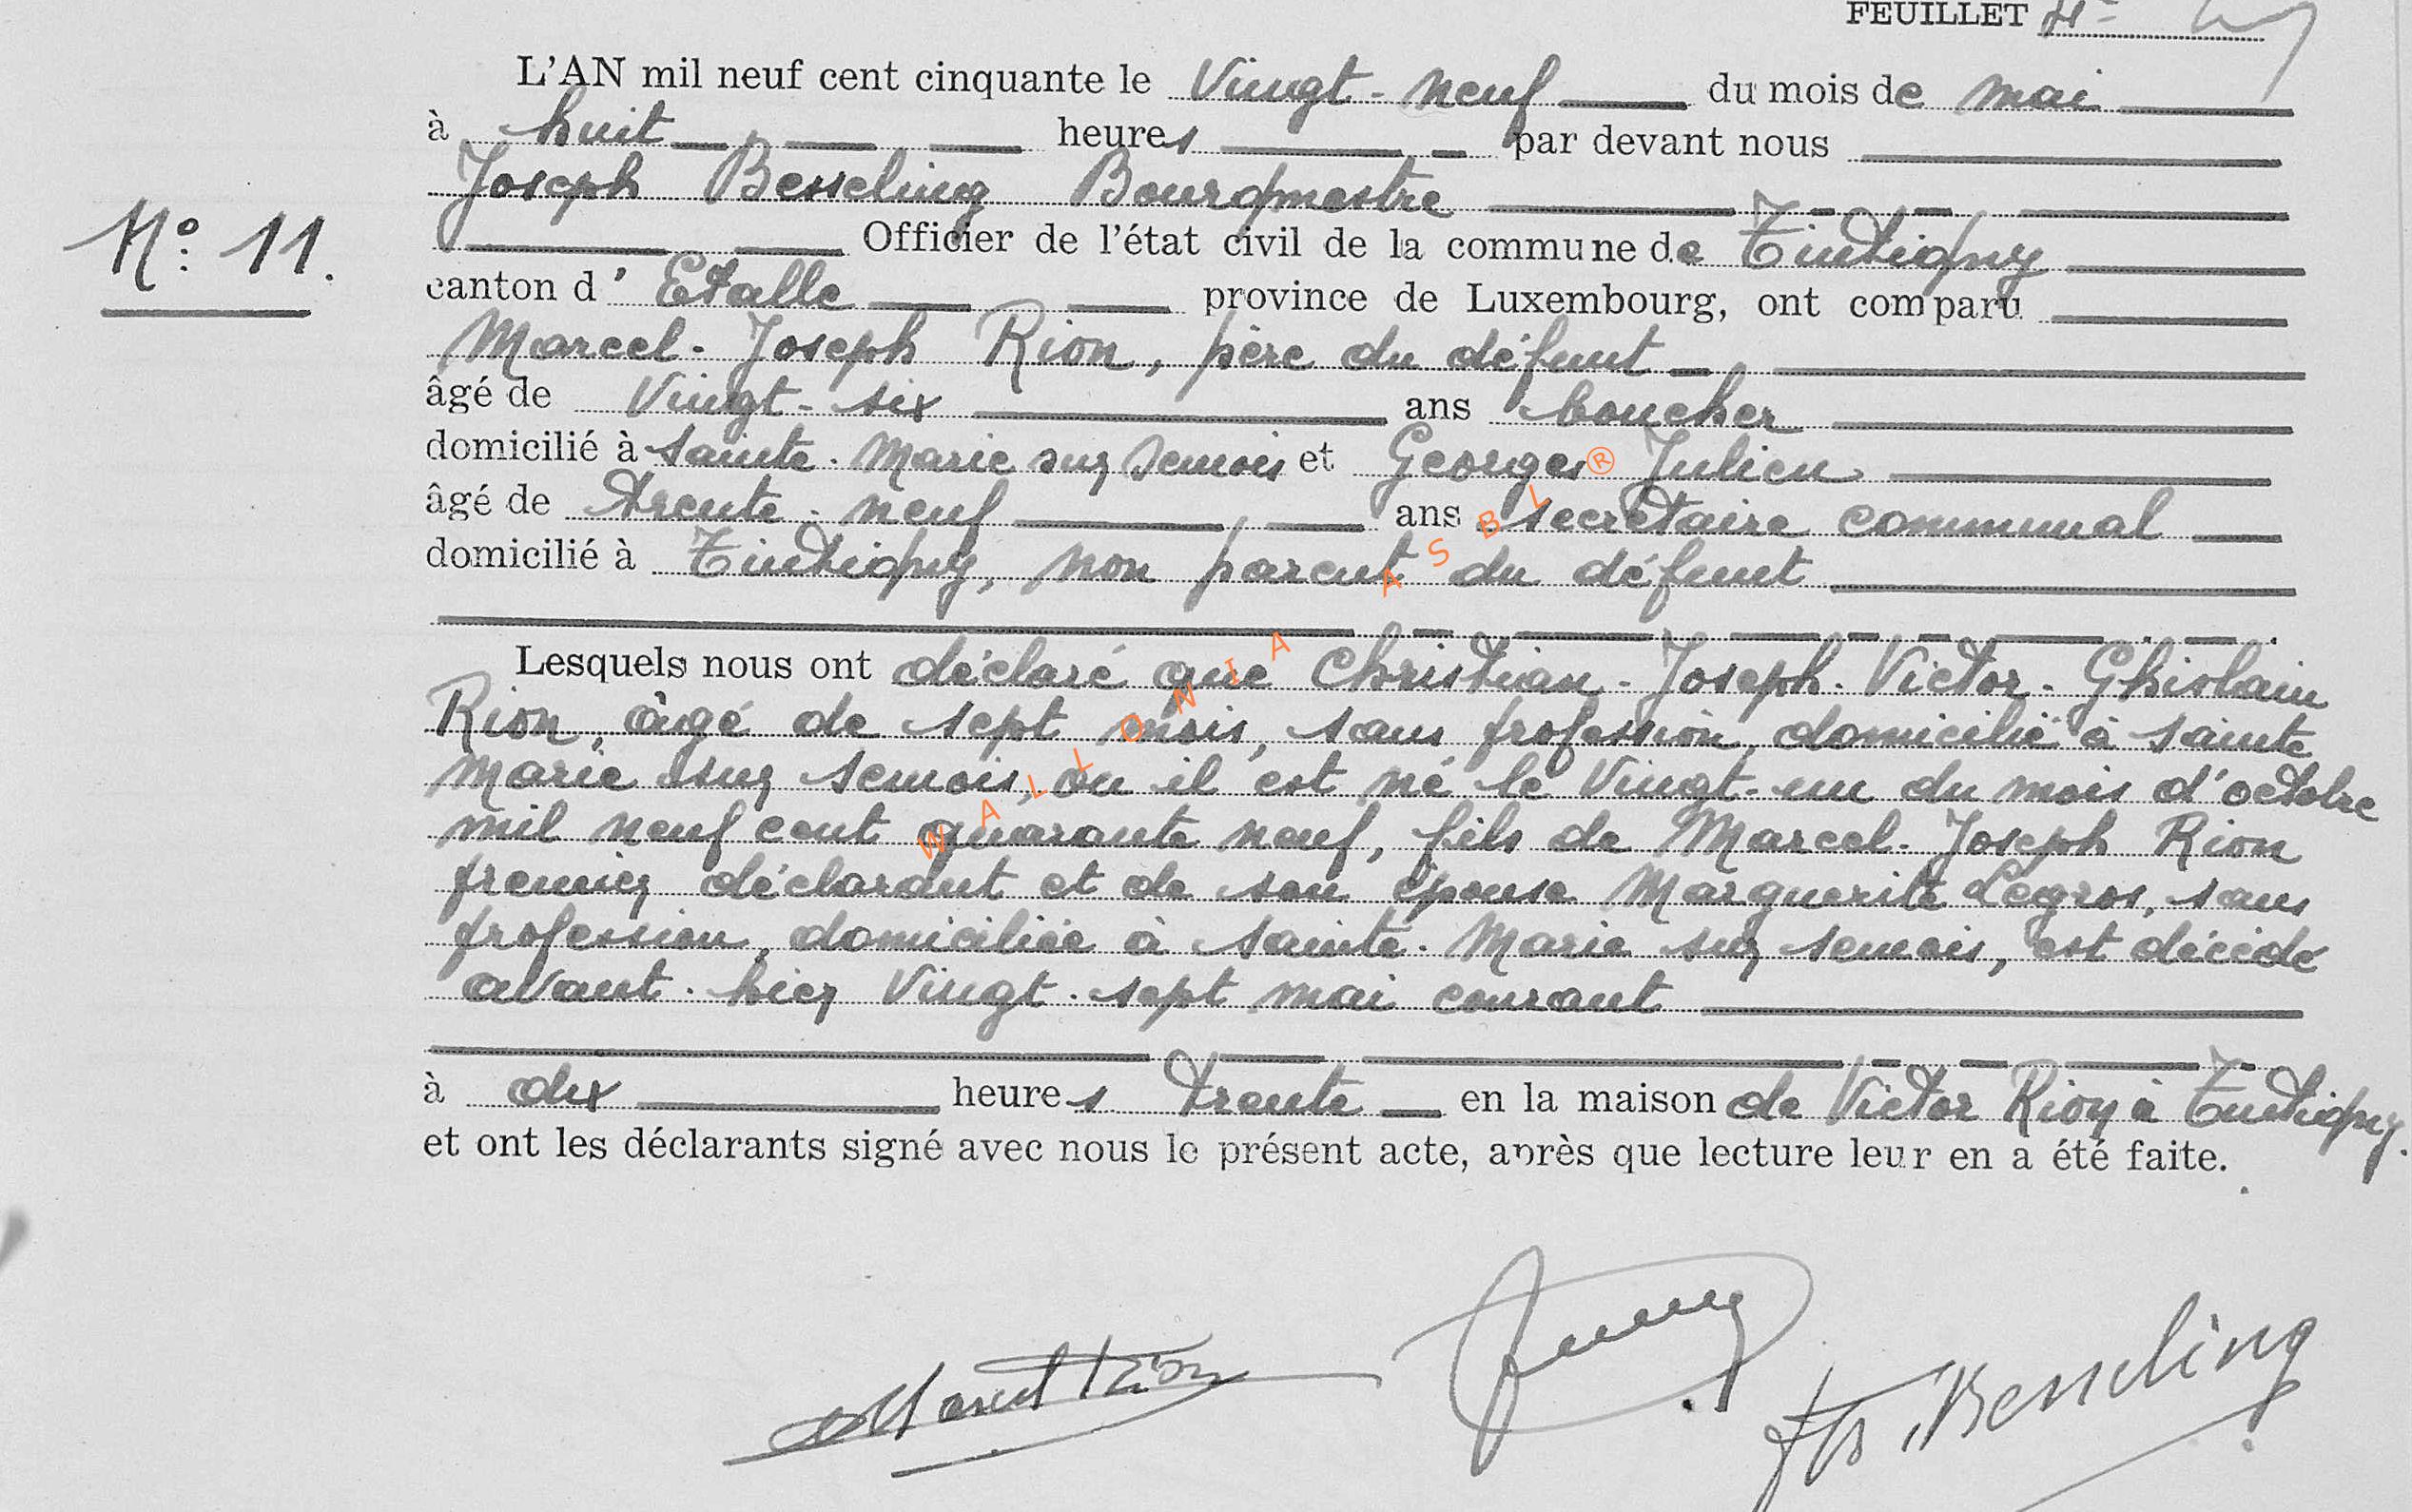 FEUILLET 4e
L'AN mil neuf cent cinquante le Vingt-neuf du mois de mai
à huit heures par devant nous
Joseph Besseling Bourgmestre
N° 11.
Officier de l'état civil de la commune de Tintigny
canton d' Etalle province de Luxembourg, ont comparu
Marcel-Joseph Rion, père du défunt
âgé de Vingt-six ans boucher
domicilié à Sainte-Marie sur Semois et Georges Julien
âgé de trente-neuf ans secrétaire communal
domicilié à Tintigny, non parent du défunt
Lesquels nous ont déclaré que Christian-Joseph-Victor-Ghislain
Rion, âgé de sept mois, sans profession, domicilié à Sainte
Marie sur Semois, ou il est né le Vingt-un du mois d'octobre
mil neuf cent quarante neuf, fils de Marcel-Joseph Rion
premier déclarant et de son épouse Marguerite Legros, sans
profession, domiciliée à Sainte-Marie sur Semois, est décédé
avant-hier Vingt-sept mai courant
à dix heures trente en la maison de Victor Rion à Tintigny.
et ont les déclarants signé avec nous le présent acte, après que lecture leur en a été faite.
Marcel Rion
Jh Besseling
WALLONIA ASBL®